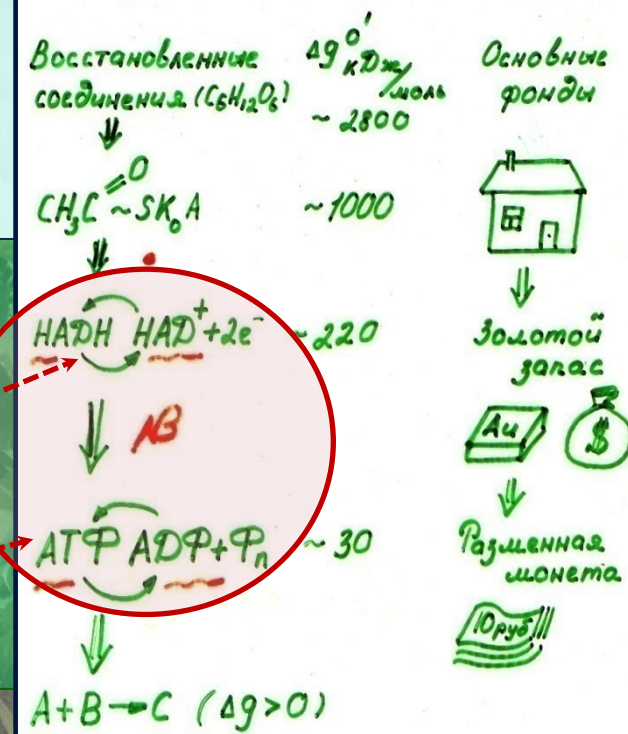 Восстановленные
соединения (C₆H₁₂O₆)
Δg⁰'
кДж/моль
~ 2800
Основные
фонды
CH₃C=O ~SKₒA
~1000
НАДН НАД⁺+2e⁻
~220
Золотой
запас
Au
$
NB
АТФ АДФ+Фₙ
~ 30
Разменная
монета
10 руб
A+B→C (Δg>0)